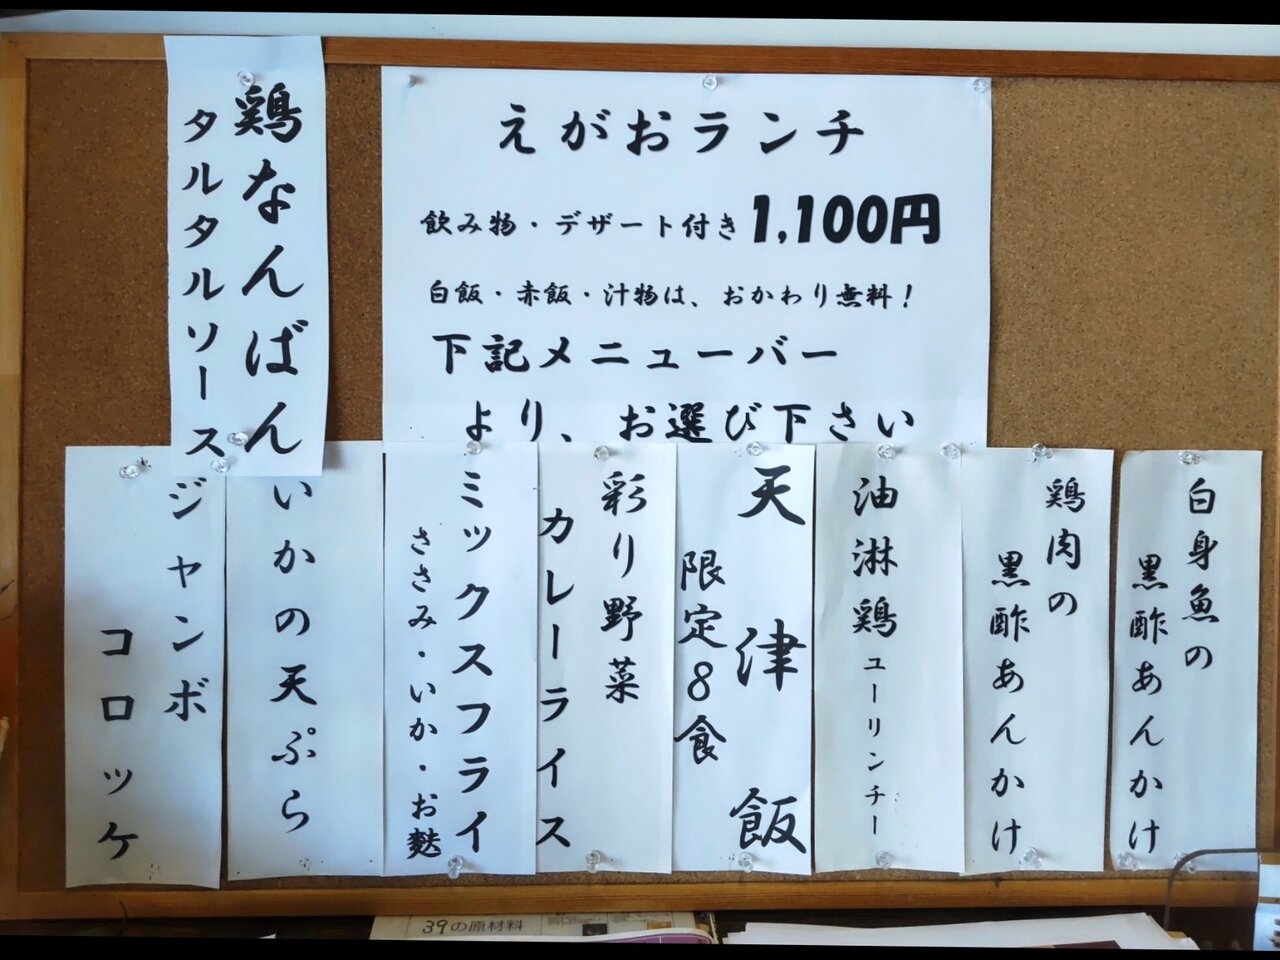 えがおランチ
飲み物・デザート付き 1,100円
白飯・赤飯・汁物は、おかわり無料！
下記メニューバー
より、お選び下さい
白身魚の
黒酢あんかけ
鶏肉の
黒酢あんかけ
油淋鶏 ユーリンチー
天津飯
限定８食
彩り野菜
カレーライス
ミックスフライ
ささみ・いか・お麩
いかの天ぷら
ジャンボ
コロッケ
鶏なんばん
タルタルソース
39の原材料